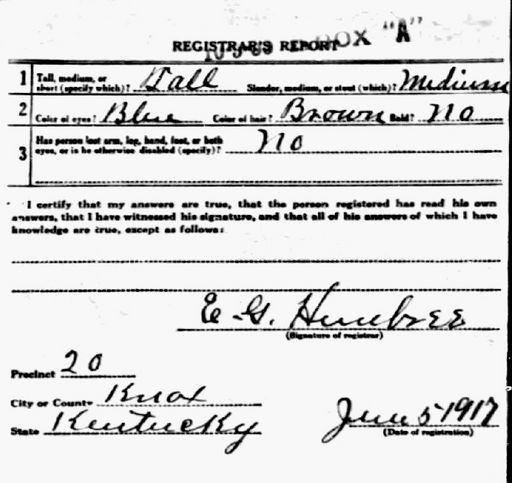 REGISTRAR'S REPORT BOX "A"
1 Tall, medium, or short (specify which)? Tall Slender, medium, or stout (which)? Medium
2 Color of eyes? Blue Color of hair? Brown Bald? No
3 Has person lost arm, leg, hand, foot, or both eyes, or is he otherwise disabled (specify)? No
I certify that my answers are true, that the person registered has read his own
answers, that I have witnessed his signature, and that all of his answers of which I have
knowledge are true, except as follows:
E. G.
(Signature of registrar)
Precinct 20
City or County Knox
State Kentucky
June 5 1917
(Date of registration)